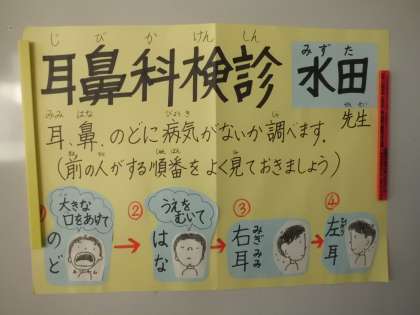 じびかけんしん
耳鼻科検診
みずた
水田
先生
みみ はな びょうき しら
耳、鼻、のどに病気がないか調べます。
(前の人がする順番をよく見ておきましょう)
大きな
口をあけて
のど
②
うえを
むいて
はな
③
みぎみみ
右耳
④
左耳